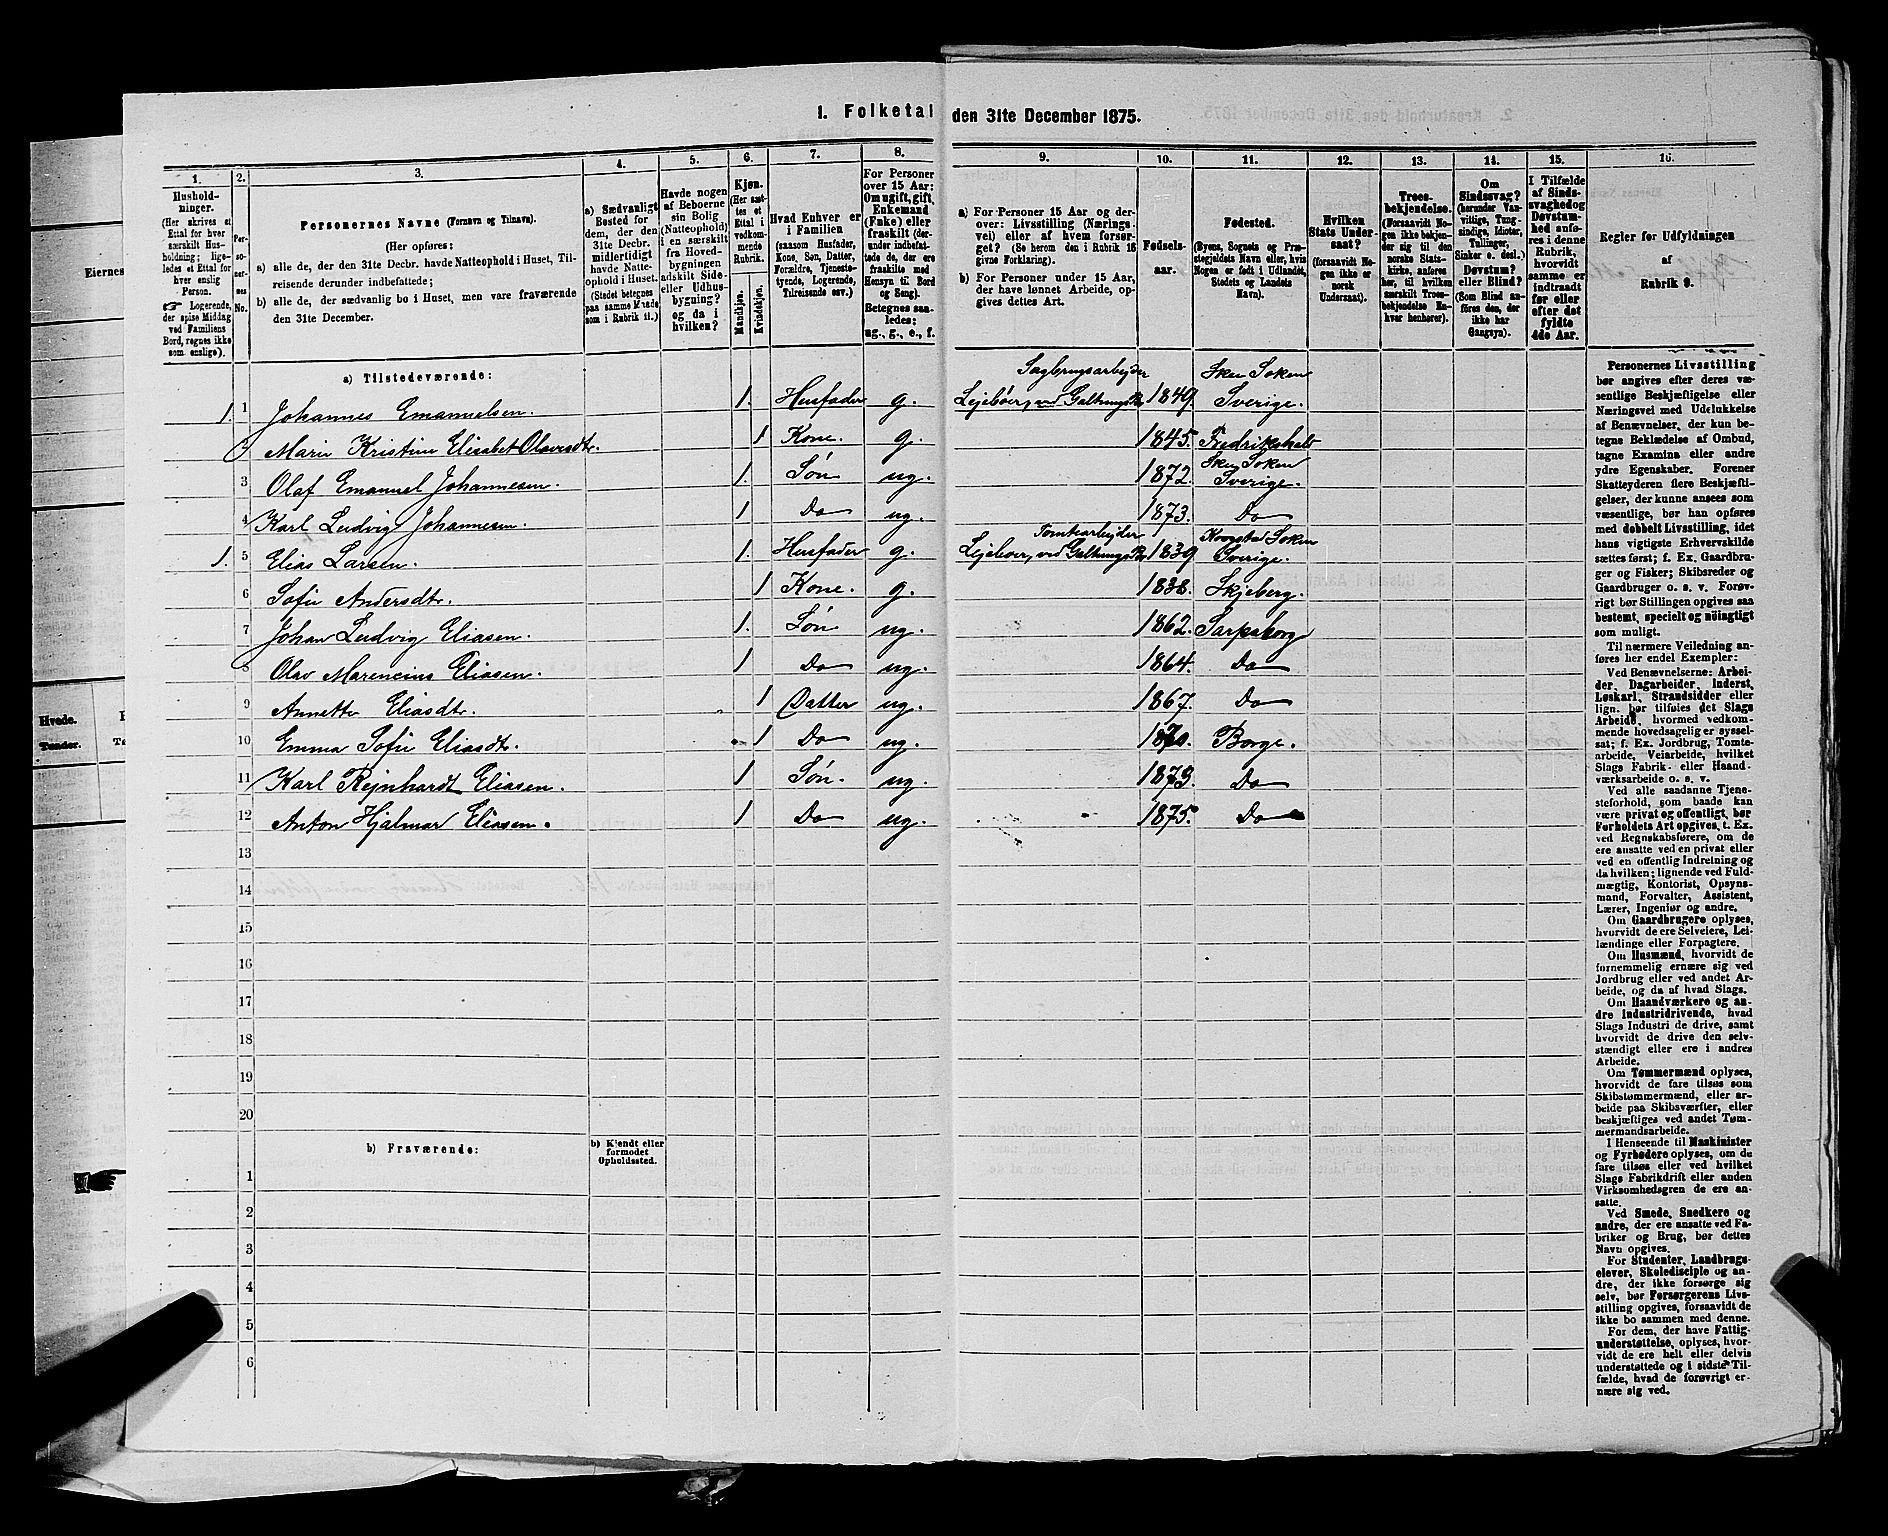 1. Folketal den 31te December 1875.
1. 2. 3. 4. 5. 6. 7. 8. 9. 10. 11. 12. 13. 14. 15. 16.
Hushold-
ninger.
(Her skrives et
Ettal for hver
særskilt Hus-
holdning; lige-
ledes et Ettal for
hver enslig
Person.
☞ Logerende,
der spise Middag
ved Familiens
Bord, regnes ikke
som enslige).
Per-
so-
ner-
nes
No.
Personernes Navne (Fornavn og Tilnavn).
(Her opføres:
a) alle de, der den 31te Decbr. havde Natteophold i Huset, Til-
reisende derunder indbefattede;
b) alle de, der sædvanlig bo i Huset, men vare fraværende
den 31te December.
a) Sædvanligt
Bosted for
dem, der den
31te Decbr.
midlertidigt
havde Natte-
ophold i Huset.
(Stedet betegnes
paa samme Maade
som i Rubrik 11.)
Havde nogen
af Beboerne
sin Bolig
(Natteophold)
i en særskilt
fra Hoved-
bygningen
adskilt Side-
eller Udhus-
bygning?
og da i
hvilken?
Kjøn.
(Her sæt-
tes et
Ettal i
vedkom-
mende
Rubrik.
Mandkjøn.
Kvindekjøn.
Hvad Enhver er
i Familien
(saasom Husfader,
Kone, Søn, Datter,
Forældre, Tjeneste-
tyende, Logerende,
Tilreisende osv.)
For Personer
over 15 Aar:
Om ugift, gift,
Enkemand
(Enke) eller
fraskilt (der-
under indbefat-
tede de, der ere
fraskilte med
Hensyn til Bord
og Seng).
Betegnes saa-
ledes:
ug., g., e., f.
a) For Personer 15 Aar og der-
over: Livsstilling (Nærings-
vei) eller af hvem forsør-
get? (Se herom den i Rubrik 16
givne Forklaring).
b) For Personer under 15 Aar,
der have lønnet Arbeide, op-
gives dettes Art.
Fødsels-
aar.
Fødested.
(Byens, Sognets og Præ-
stegjeldets Navn eller, hvis
Nogen er født i Udlandet,
Stedets og Landets
Navn).
Hvilken
Stats Under-
saat?
(forsaavidt No-
gen ikke er
norsk
Undersaat).
Troes-
bekjendelse.
(Forsaavidt No-
gen ikke bekjen-
der sig til den
norske Stats-
kirke, anføres
her, til hvilken
særskilt Troes-
bekjendelse En-
hver henhører).
Om
Sindssvag?
(herunder Van-
vittige, Tung-
sindige, Idioter,
Tullinger,
Sinker o. desl.)
Døvstum?
eller Blind?
(Som Blind an-
føres den, der
ikke har
Gangsyn).
I Tilfælde
af Sinds-
svaghed og
Døvstum-
hed anfø-
res i denne
Rubrik,
hvorvidt
samme er
indtraadt
før eller
efter det
fyldte
4de Aar.
Regler for Udfyldningen
af
Rubrik 9.
a) Tilstedeværende:
1. 1 Johannes Emanuelsen. 1. Husfader g. Sagbrugsarbejder Lejeboer, ved 1849. Sken Soken Sverige.
2 Marie Kristine Elisabet Olavsdtr. 1 Kone. g. 1845. Fredrikshald
3 Olaf Emanuel Johannesen. 1. Søn ug. 1872. Sken Soken Sverige.
4 Karl Ludvig Johannesen. 1 Do ug. 1873. Do
1. 5 Elias Larsen. 1. Husfader g. Tomtearbejder Lejeboer, ved 1839 Soken Sverige.
6 Sofie Andersdtr. 1 Kone. g. 1838. Skjeberg.
7 Johan Ludvig Eliasen. 1. Søn ug. 1862. Sarpsborg
8 Olav Marencius Eliasen. 1 Do ug. 1864. Do
9 Annette Eliasdtr. 1 Datter ug. 1867. Do
10 Emma Sofie Eliasdtr. 1 Do ug. 1870. Borge.
11 Karl Rejnhardt Eliasen. 1 Søn. ug. 1873. Do
12 Anton Hjalmar Eliasen. 1 Do ug. 1875. Do
13
14
15
16
17
18
19
20
b) Fraværende:
b) Kjendt eller
formodet
Opholdssted.
1
2
3
4
5
6
Personernes Livsstilling
bør angives efter deres væ-
sentlige Beskjæftigelse eller
Næringsvei med Udelukkelse
af Benævnelser, der kun be-
tegne Beklædelse af Ombud,
tagne Examina eller andre
ydre Egenskaber. Forener
Skatteyderen flere Beskjæfti-
gelser, der kunne ansees som
væsentlige, bør han opføres
med dobbelt Livsstilling, idet
hans vigtigste Erhvervskilde
sættes først; f. Ex. Gaardbru-
ger og Fisker; Skibsreder og
Gaardbruger o. s. v. Forøv-
rigt bør Stillingen opgives saa
bestemt, specielt og nøiagtigt
som muligt.
Til nærmere Veiledning an-
føres her endel Exempler:
Ved Benævnelserne: Arbei-
der, Dagarbeider, Inderst,
Løskarl, Strandsidder eller
lign. bør tilføies det Slags
Arbeide, hvormed vedkom-
mende hovedsagelig er syssel-
sat; f. Ex. Jordbrug, Tomte-
arbeide, Veiarbeide, hvilket
Slags Fabrik- eller Haand-
værksarbeide o. s. v.
Ved alle saadanne Tjene-
steforhold, som baade kan
være privat og offentligt, bør
Forholdets Art opgives, t. Ex.
ved Regnskabsførere, om de
ere ansatte ved en privat eller
ved en offentlig Indretning og
da hvilken; lignende ved Fuld-
mægtig, Kontorist, Opsyns-
mand, Forvalter, Assistent,
Lærer, Ingeniør og andre.
Om Gaardbrugere oplyses,
hvorvidt de ere Selveiere, Lei-
lændinge eller Forpagtere.
Om Husmænd, hvorvidt de
fornemmelig ernære sig ved
Jordbrug eller ved andet Ar-
beide, og da af hvad Slags.
Om Haandværkere og an-
dre industridrivende, hvad
Slags Industri de drive, samt
hvorvidt de drive den selv-
stændigt eller ere i andres
Arbeide.
Om Tømmermænd oplyses,
hvorvidt de fare tilsøs som
Skibstømmermænd, eller ar-
beide paa Skibsværfter, eller
beskjæftiges ved andet Tøm-
mermandsarbeide.
I Henseende til Maskinister
og Fyrbødere oplyses, om de
fare tilsøs eller ved hvilket
Slags Fabrikdrift eller anden
Virksomhedsgren de ere an-
satte.
Ved Smede, Snedkere og
andre, der ere ansatte ved Fa-
briker og Brug, bør dettes
Navn opgives.
For Studenter, Landbrugs-
elever, Skoledisciple og an-
dre, der ikke forsørge sig
selv, bør Forsørgerens Livs-
stilling opgives, forsaavidt de
ikke bo sammen med denne.
For dem, der have Fattig-
understøttelse, oplyses, hvor-
vidt de ere helt eller delvis
understøttede og i sidste Til-
fælde, hvad de forøvrigt er-
nære sig ved.
Eiernes
Hvede.
Tønder.